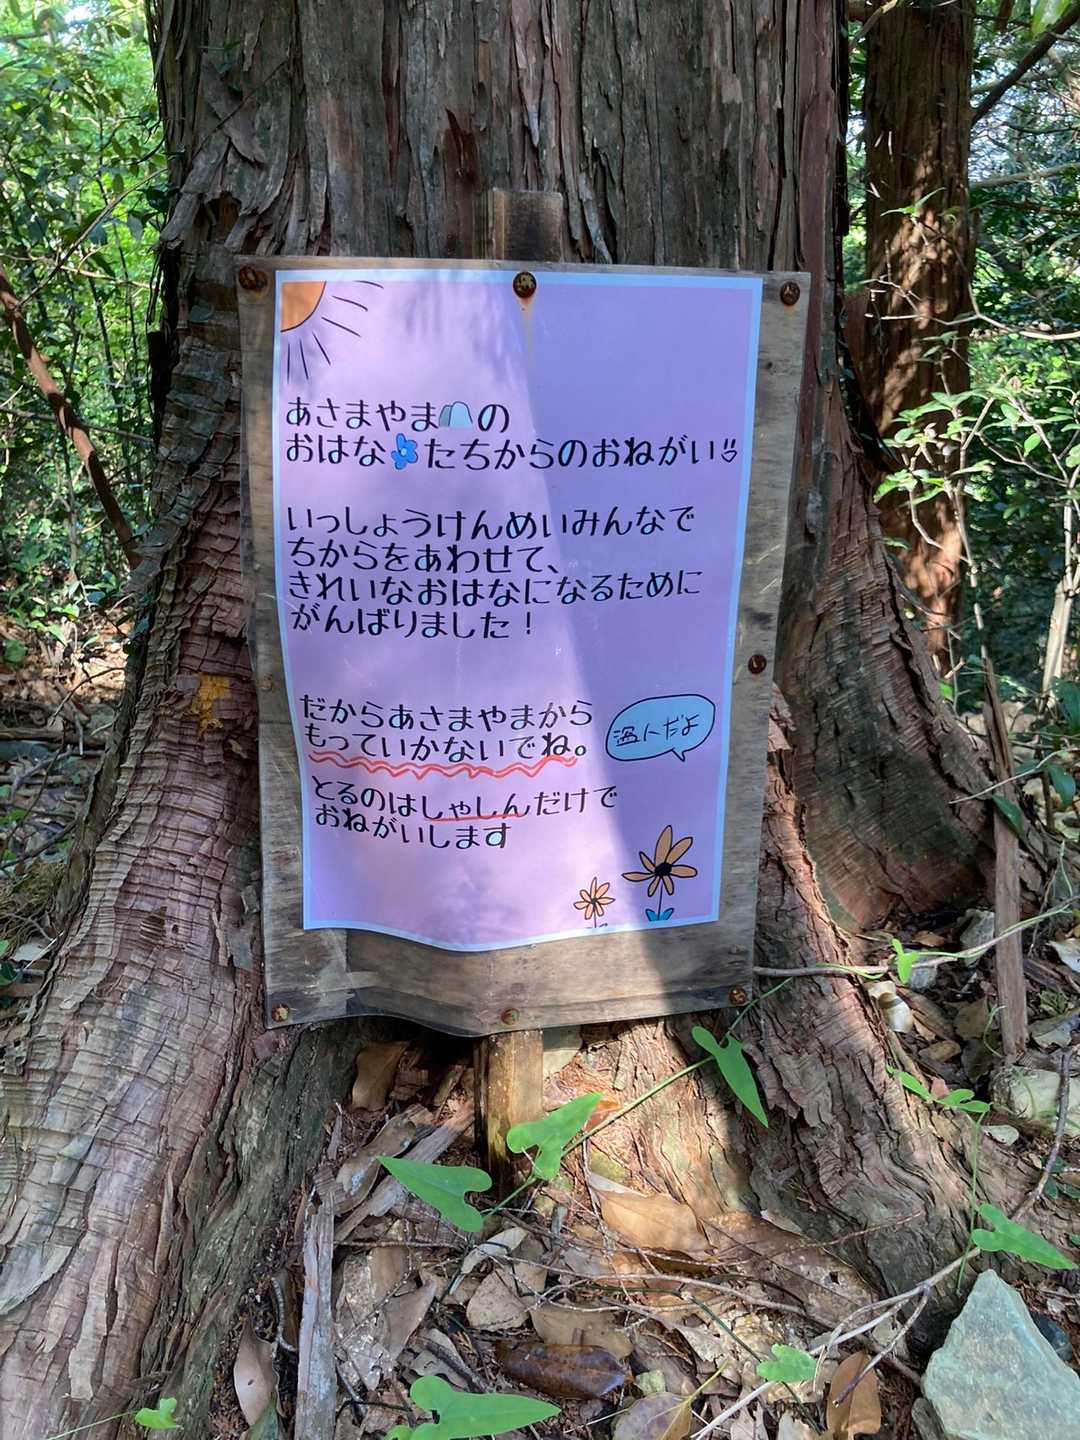 あさまやまの
おはなたちからのおねがい
いっしょうけんめいみんなで
ちからをあわせて、
きれいなおはなになるために
がんばりました！
だからあさまやまから
もっていかないでね。
んだよ
とるのはしゃしんだけで
おねがいします